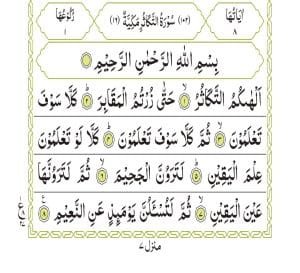 اٰيَاتُهَا ٨ (١٠٢) سُوْرَةُ التَّكَاثُرِ مَكِّيَّةٌ (١٦) رُكُوْعُهَا ١
بِسْمِ اللّٰهِ الرَّحْمٰنِ الرَّحِيْمِ
اَلْهٰىكُمُ التَّكَاثُرُ ۝١ حَتّٰى زُرْتُمُ الْمَقَابِرَ ۝٢ كَلَّا سَوْفَ
تَعْلَمُوْنَ ۝٣ ثُمَّ كَلَّا سَوْفَ تَعْلَمُوْنَ ۝٤ كَلَّا لَوْ تَعْلَمُوْنَ
عِلْمَ الْيَقِيْنِ ۝٥ لَتَرَوُنَّ الْجَحِيْمَ ۝٦ ثُمَّ لَتَرَوُنَّهَا
عَيْنَ الْيَقِيْنِ ۝٧ ثُمَّ لَتُسْـَٔلُنَّ يَوْمَىِٕذٍ عَنِ النَّعِيْمِ ۝٨
منزل ٧